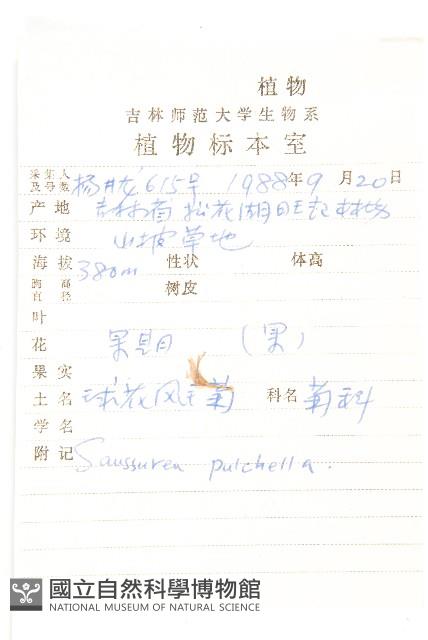 植物
吉林师范大学生物系
植物标本室
采集人及号数 杨 615号 1988年9月20日
产地 吉林省松花湖 林场
环境 山坡草地
海拔 380m 性状 体高
胸高直径 树皮
叶
花 果期 (果)
果实
土名 球花风毛菊 科名 菊科
学名
附记 Saussurea pulchella.
國立自然科學博物館
NATIONAL MUSEUM OF NATURAL SCIENCE